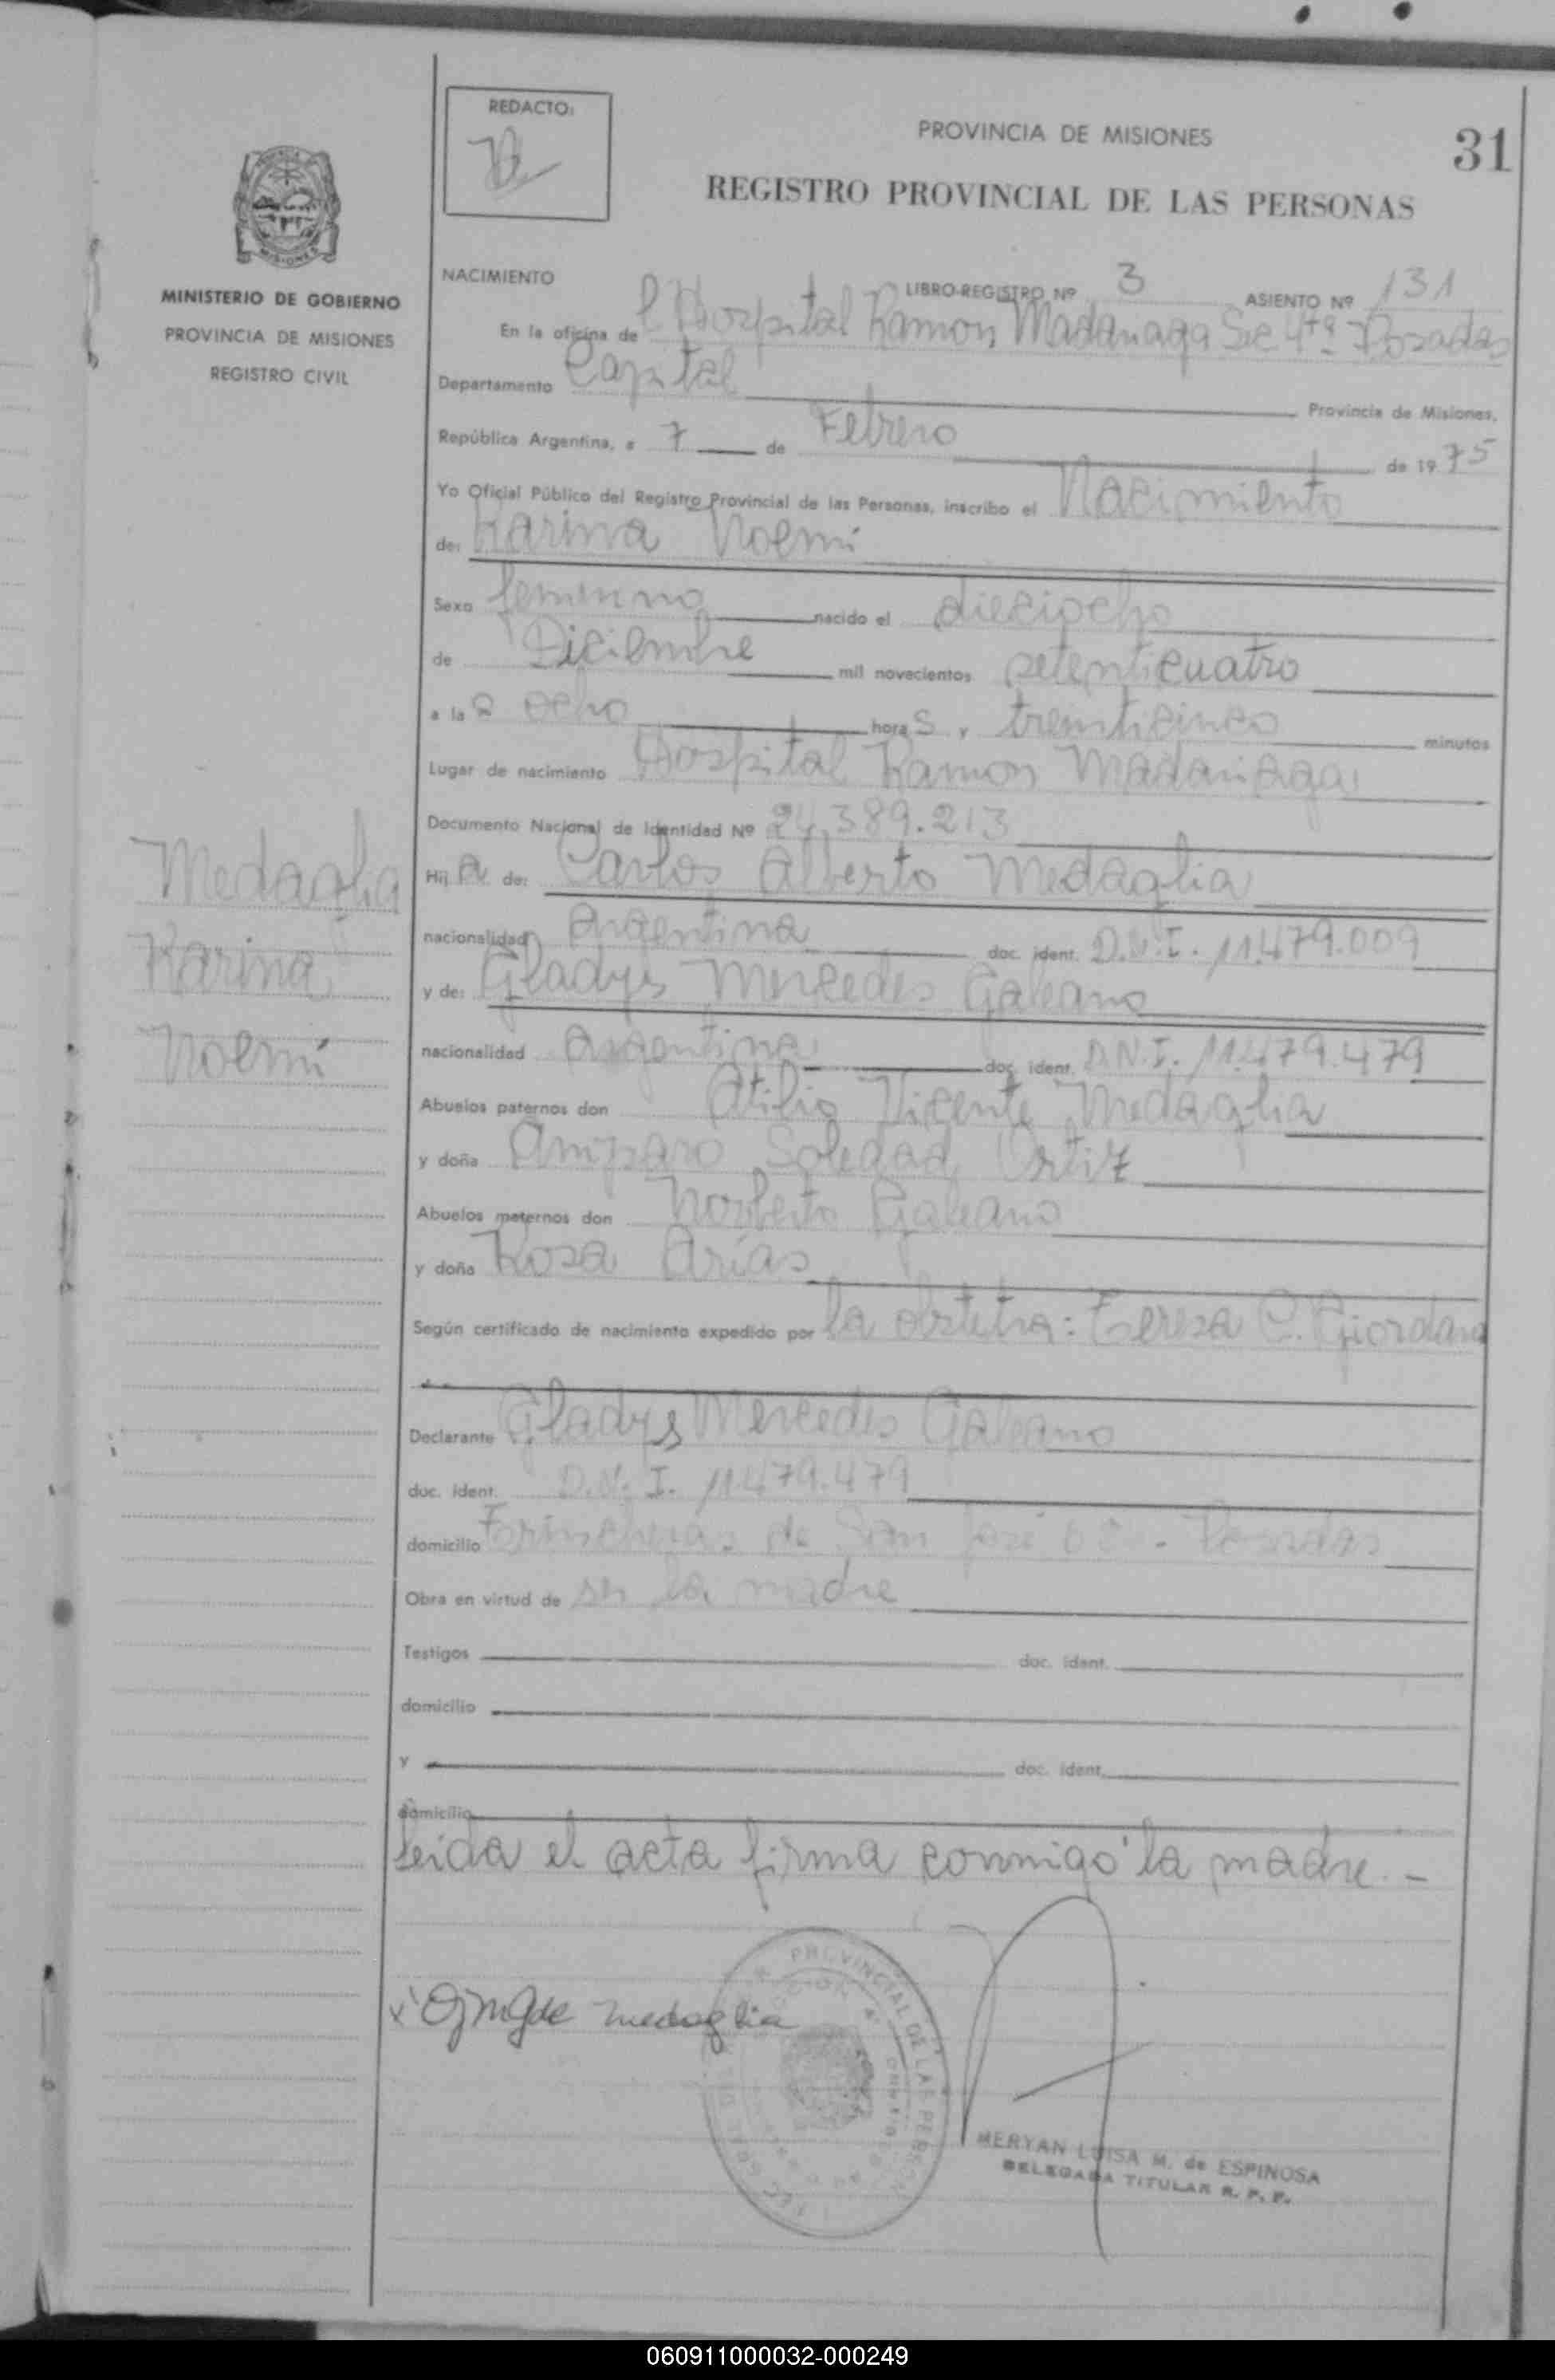 REDACTO:
PROVINCIA DE MISIONES
31
REGISTRO PROVINCIAL DE LAS PERSONAS
MINISTERIO DE GOBIERNO
PROVINCIA DE MISIONES
REGISTRO CIVIL
NACIMIENTO LIBRO-REGISTRO Nº 3 ASIENTO Nº 131
En la oficina de l Hospital Ramon Madariaga Sec 4ta Posadas
Departamento Capital Provincia de Misiones,
República Argentina, a 7 de Febrero de 1975
Yo Oficial Público del Registro Provincial de las Personas, inscribo el Nacimiento
de: Karina Noemi
Sexo femenino nacido el dieciocho
de Diciembre mil novecientos setenticuatro
a las ocho horas y treinticinco minutos
Lugar de nacimiento Hospital Ramon Madariaga
Documento Nacional de Identidad Nº 24.389.213
Hija de: Carlos Alberto Medaglia
nacionalidad Argentina doc. ident. D.N.I. 11.479.009
y de: Gladys Mercedes Galeano
nacionalidad Argentina doc. ident. D.N.I. 11.479.479
Abuelos paternos don Atilio Vicente Medaglia
y doña Amparo Soledad Ortiz
Abuelos maternos don Norberto Galeano
y doña Rosa Arias
Según certificado de nacimiento expedido por la obstetra: Teresa C. Giordano
Declarante Gladys Mercedes Galeano
doc. ident. D.N.I. 11.479.479
domicilio Trincheras de San José - Posadas
Obra en virtud de ser la madre
Testigos doc. ident.
domicilio
y doc. ident.
domicilio
Leida el acta firma conmigo la madre. -
Medaglia
Karina
Noemi
x GJMGde Medaglia
PROVINCIAL DE LAS PERSONAS
MERYAN LUISA M. de ESPINOSA
DELEGADA TITULAR R. P. P.
060911000032-000249